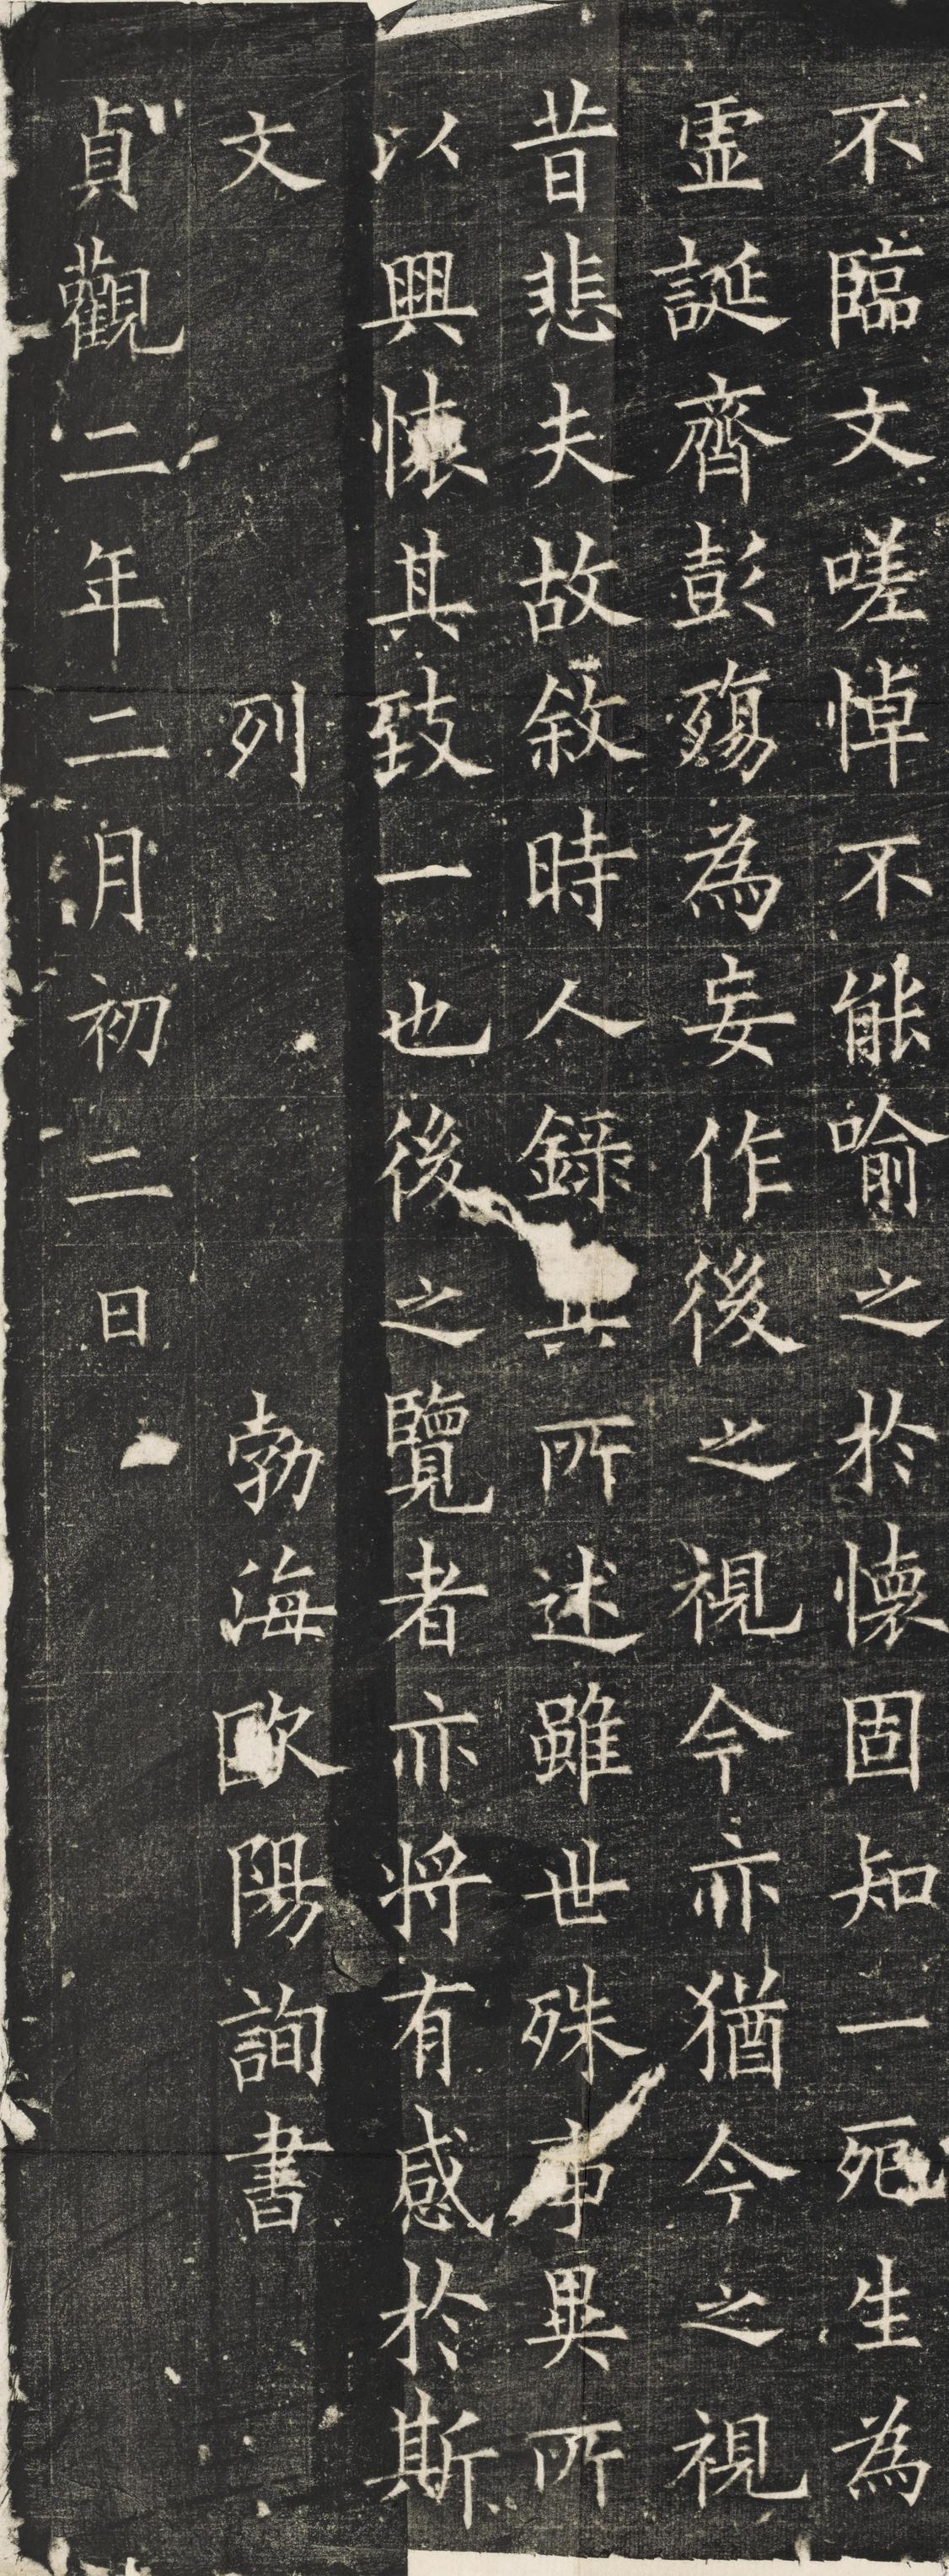 不臨文嗟悼不能喻之於懷固知一死生為
虛誕齊彭殤為妄作後之視今亦猶今之視
昔悲夫故敘時人錄其所述雖世殊事異所
以興懷其致一也後之覽者亦將有感於斯
文 列 勃海歐陽詢書
貞觀二年二月初二日